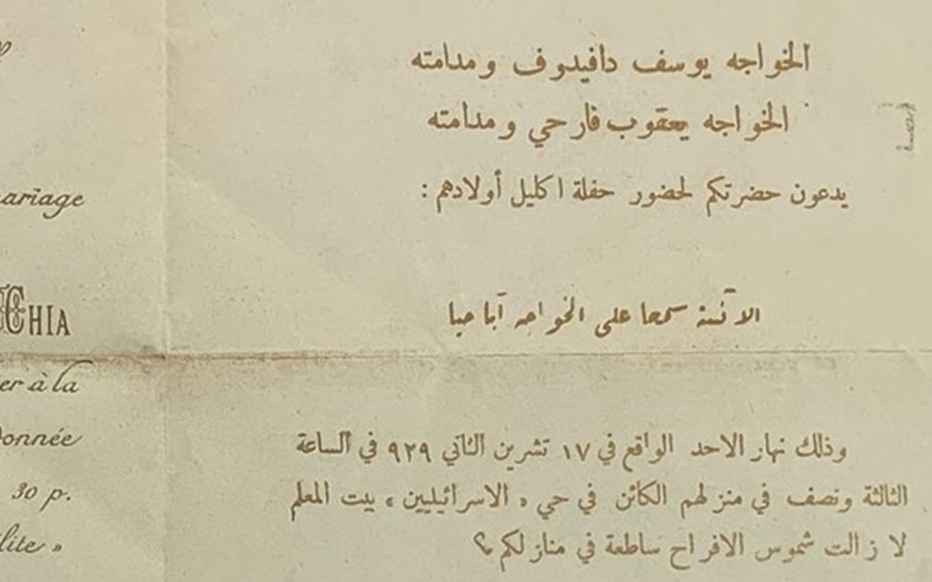 ariage
CHIA
er à la
onnée
30 p.
lite »
الخواجه يوسف دافيدوف ومدامته
الخواجه يعقوب فارحي ومدامته
يدعون حضرتكم لحضور حفلة اكليل أولادهم :
الآنسة سمحا على الخواجه آبا حيا
وذلك نهار الاحد الواقع في ١٧ تشرين الثاني ٩٢٩ في الساعة
الثالثة ونصف في منزلهم الكائن في حي « الاسرائيليين » بيت المعلم
لا زالت شموس الافراح ساطعة في منازلكم